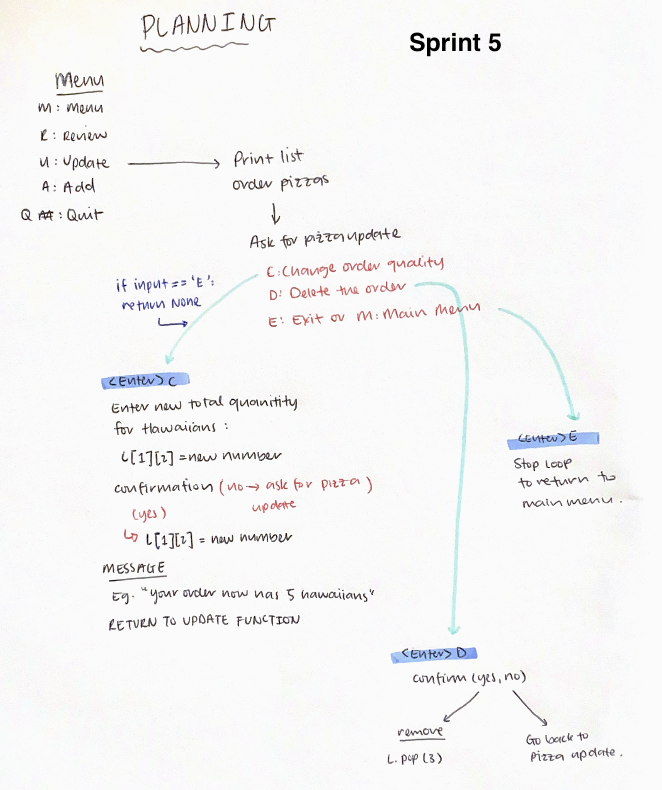 PLANNING
Sprint 5
Menu
M: Menu
R: Review
U: Update
A: Add
Q: Quit
Print list
order pizzas
Ask for pizza update
C: Change order quality
D: Delete the order
E: Exit or M: Main menu
if input == 'E':
return None
<Enter> C
Enter new total quanitity
for Hawaiians:
L[1][2] = new number
confirmation (no → ask for pizza)
(yes)
update
L[1][2] = new number
MESSAGE
Eg. "your order now has 5 hawaiians"
RETURN TO UPDATE FUNCTION
<Enter> E
Stop loop
to return to
main menu.
<Enter> D
confirm (yes, no)
remove
L.pop(3)
Go back to
pizza update.